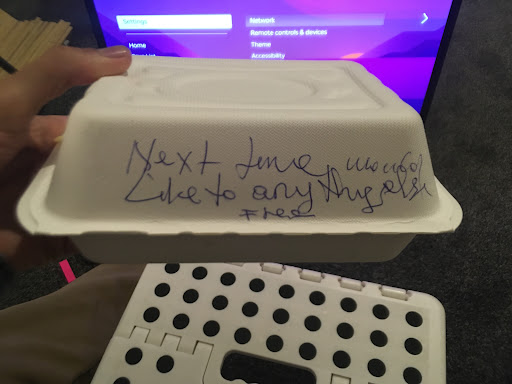 Settings
Network
Remote controls & devices
Home
Theme
Accessibility
Next time would
Like to any thing else
Free